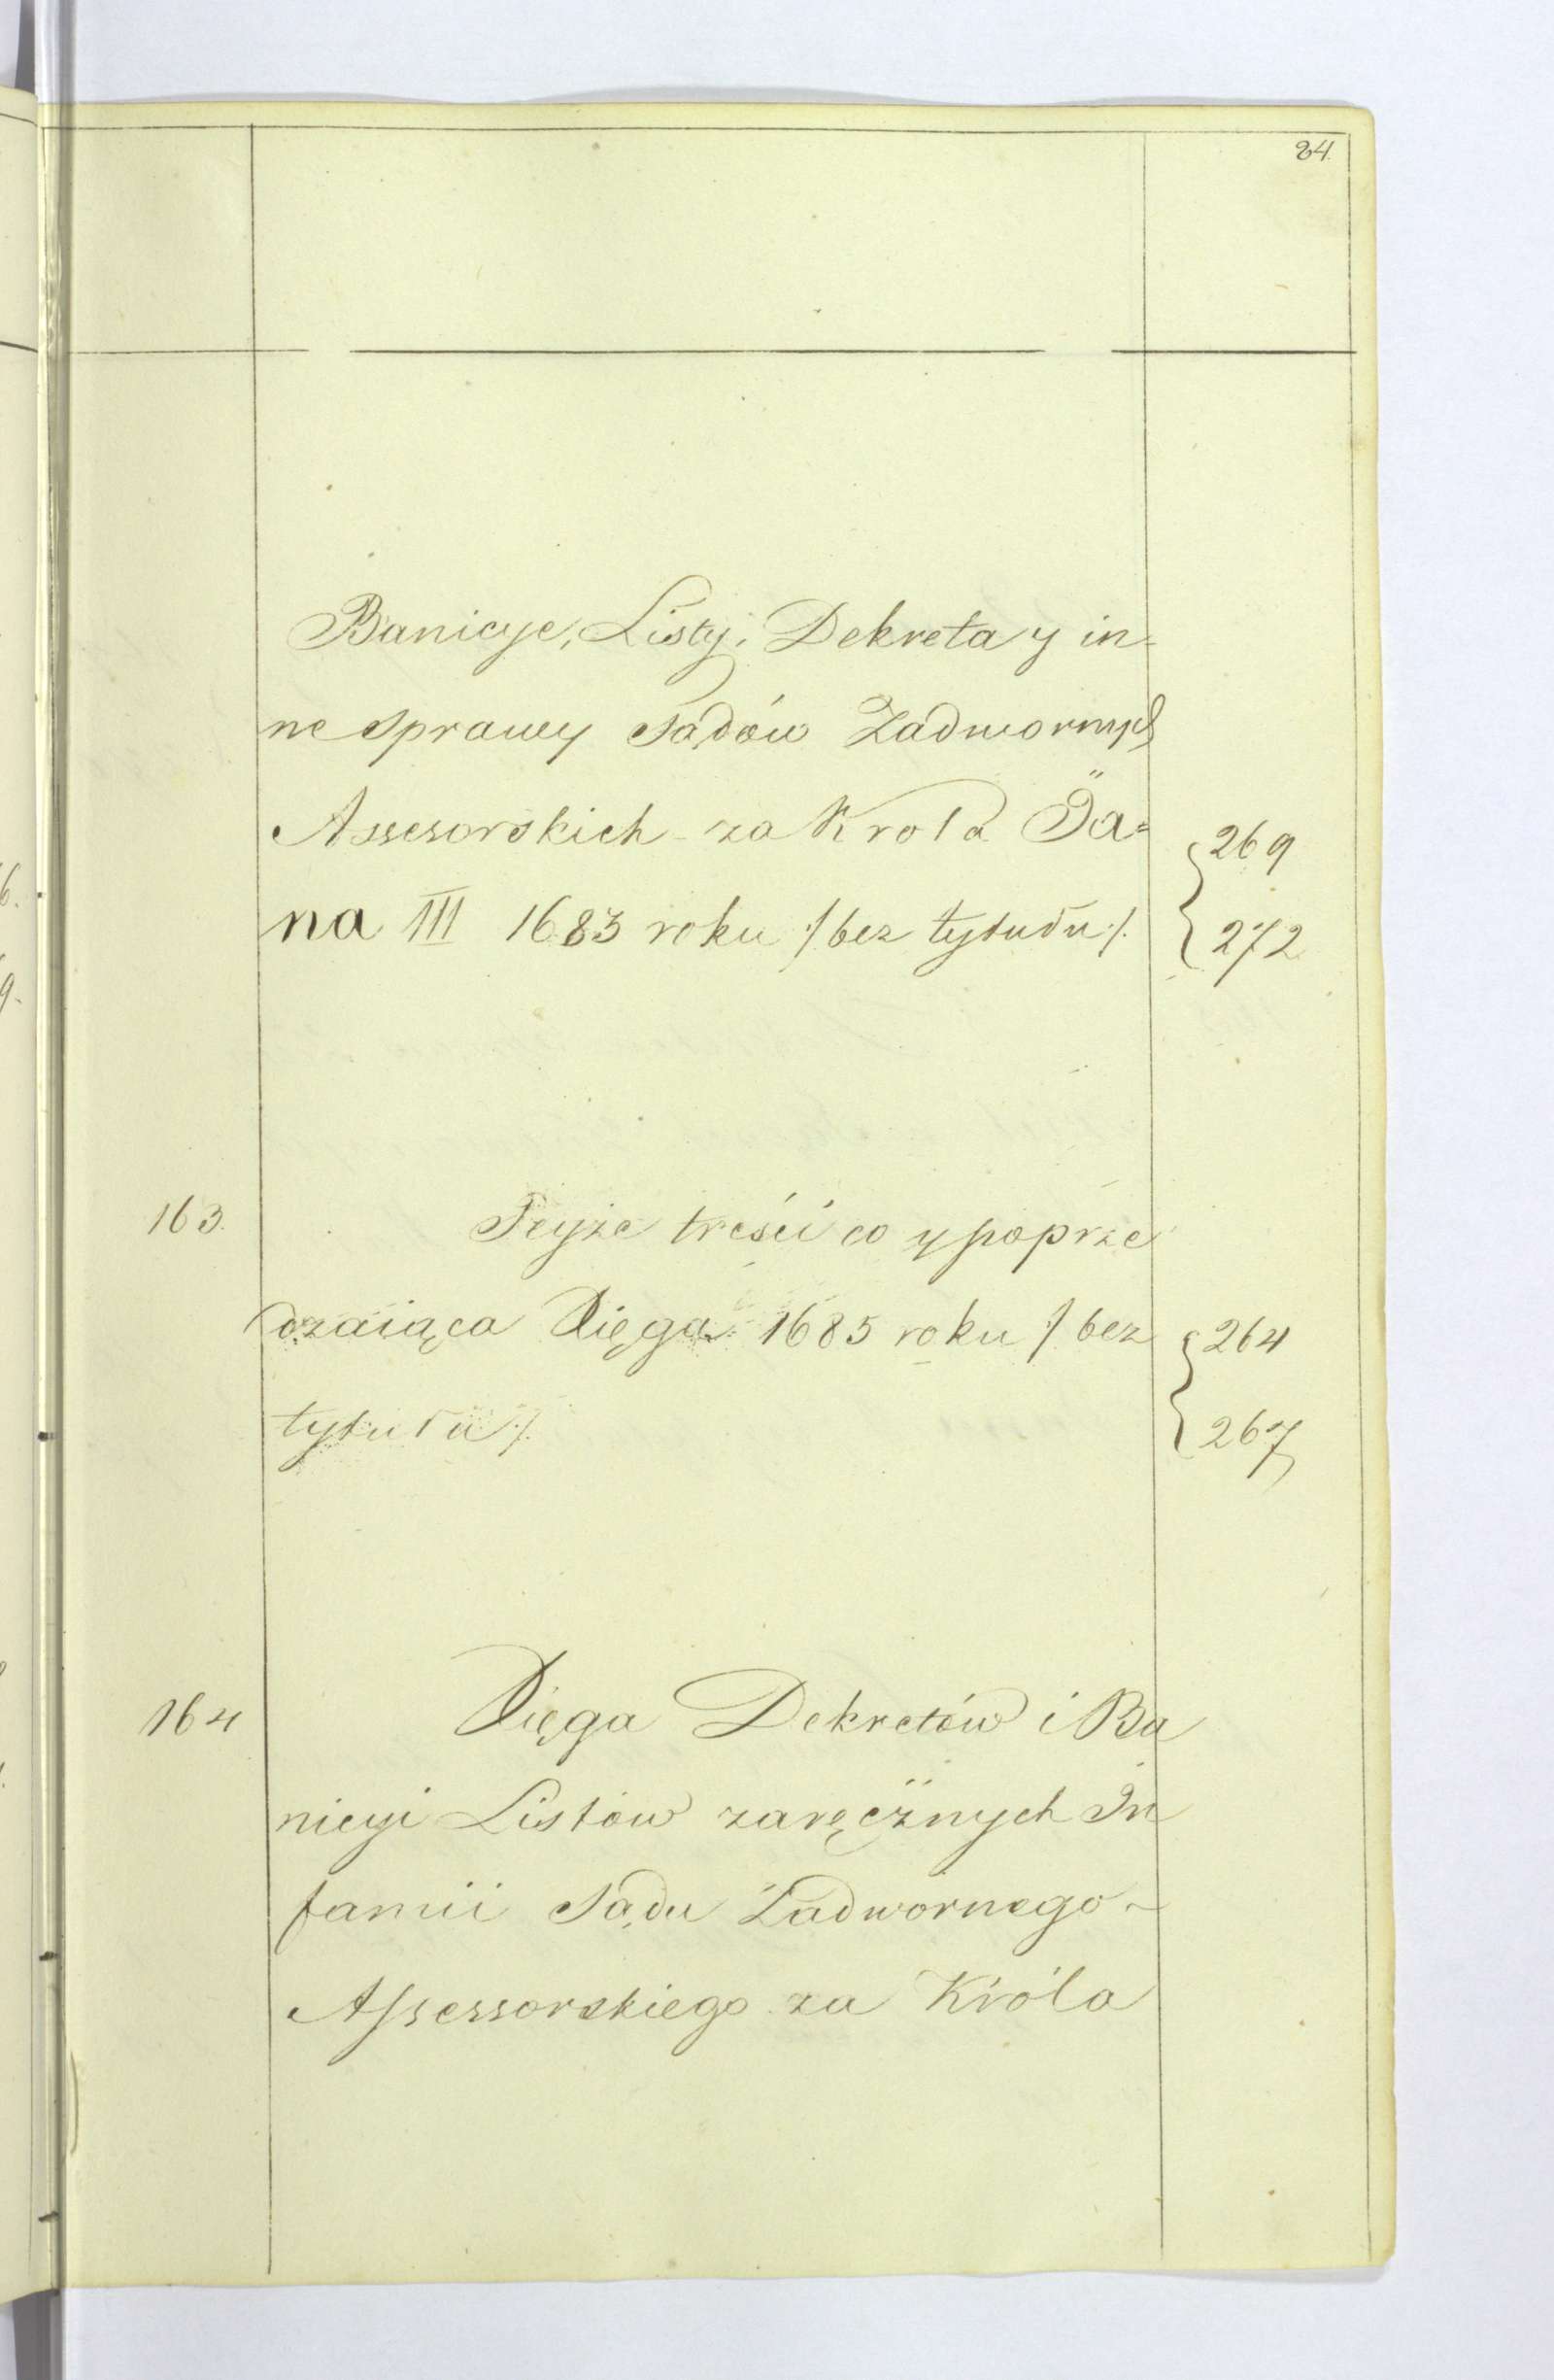 84.
Banicye, Listy, Dekreta y in-
ne Sprawy Sądów Zadwornych
Assesorskich za Krola Ja=
na III 1683 roku /: bez tytułu :/.
{ 269
{ 272
163. Teyże treści co y poprze
dzaiąca Xięga 1685 roku /: bez
tytułu :/.
{ 264
{ 267
164 Xięga Dekretów i Ba
nicyi Listów zaręcznych In
famii Sądu Zadwornego
Assessorskiego za Króla